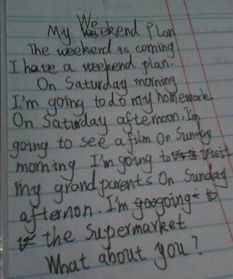 We
My Weekend Plan
The weekend is coming
I have a weekend plan.
On Saturday morning
I'm going to do my homework
On Saturday afternoon. I'm
going to see a film On Sunday
morning I'm going to visit
my grandparents On Sunday
afternon. I'm gogoing to
the Supermarket
What about you?